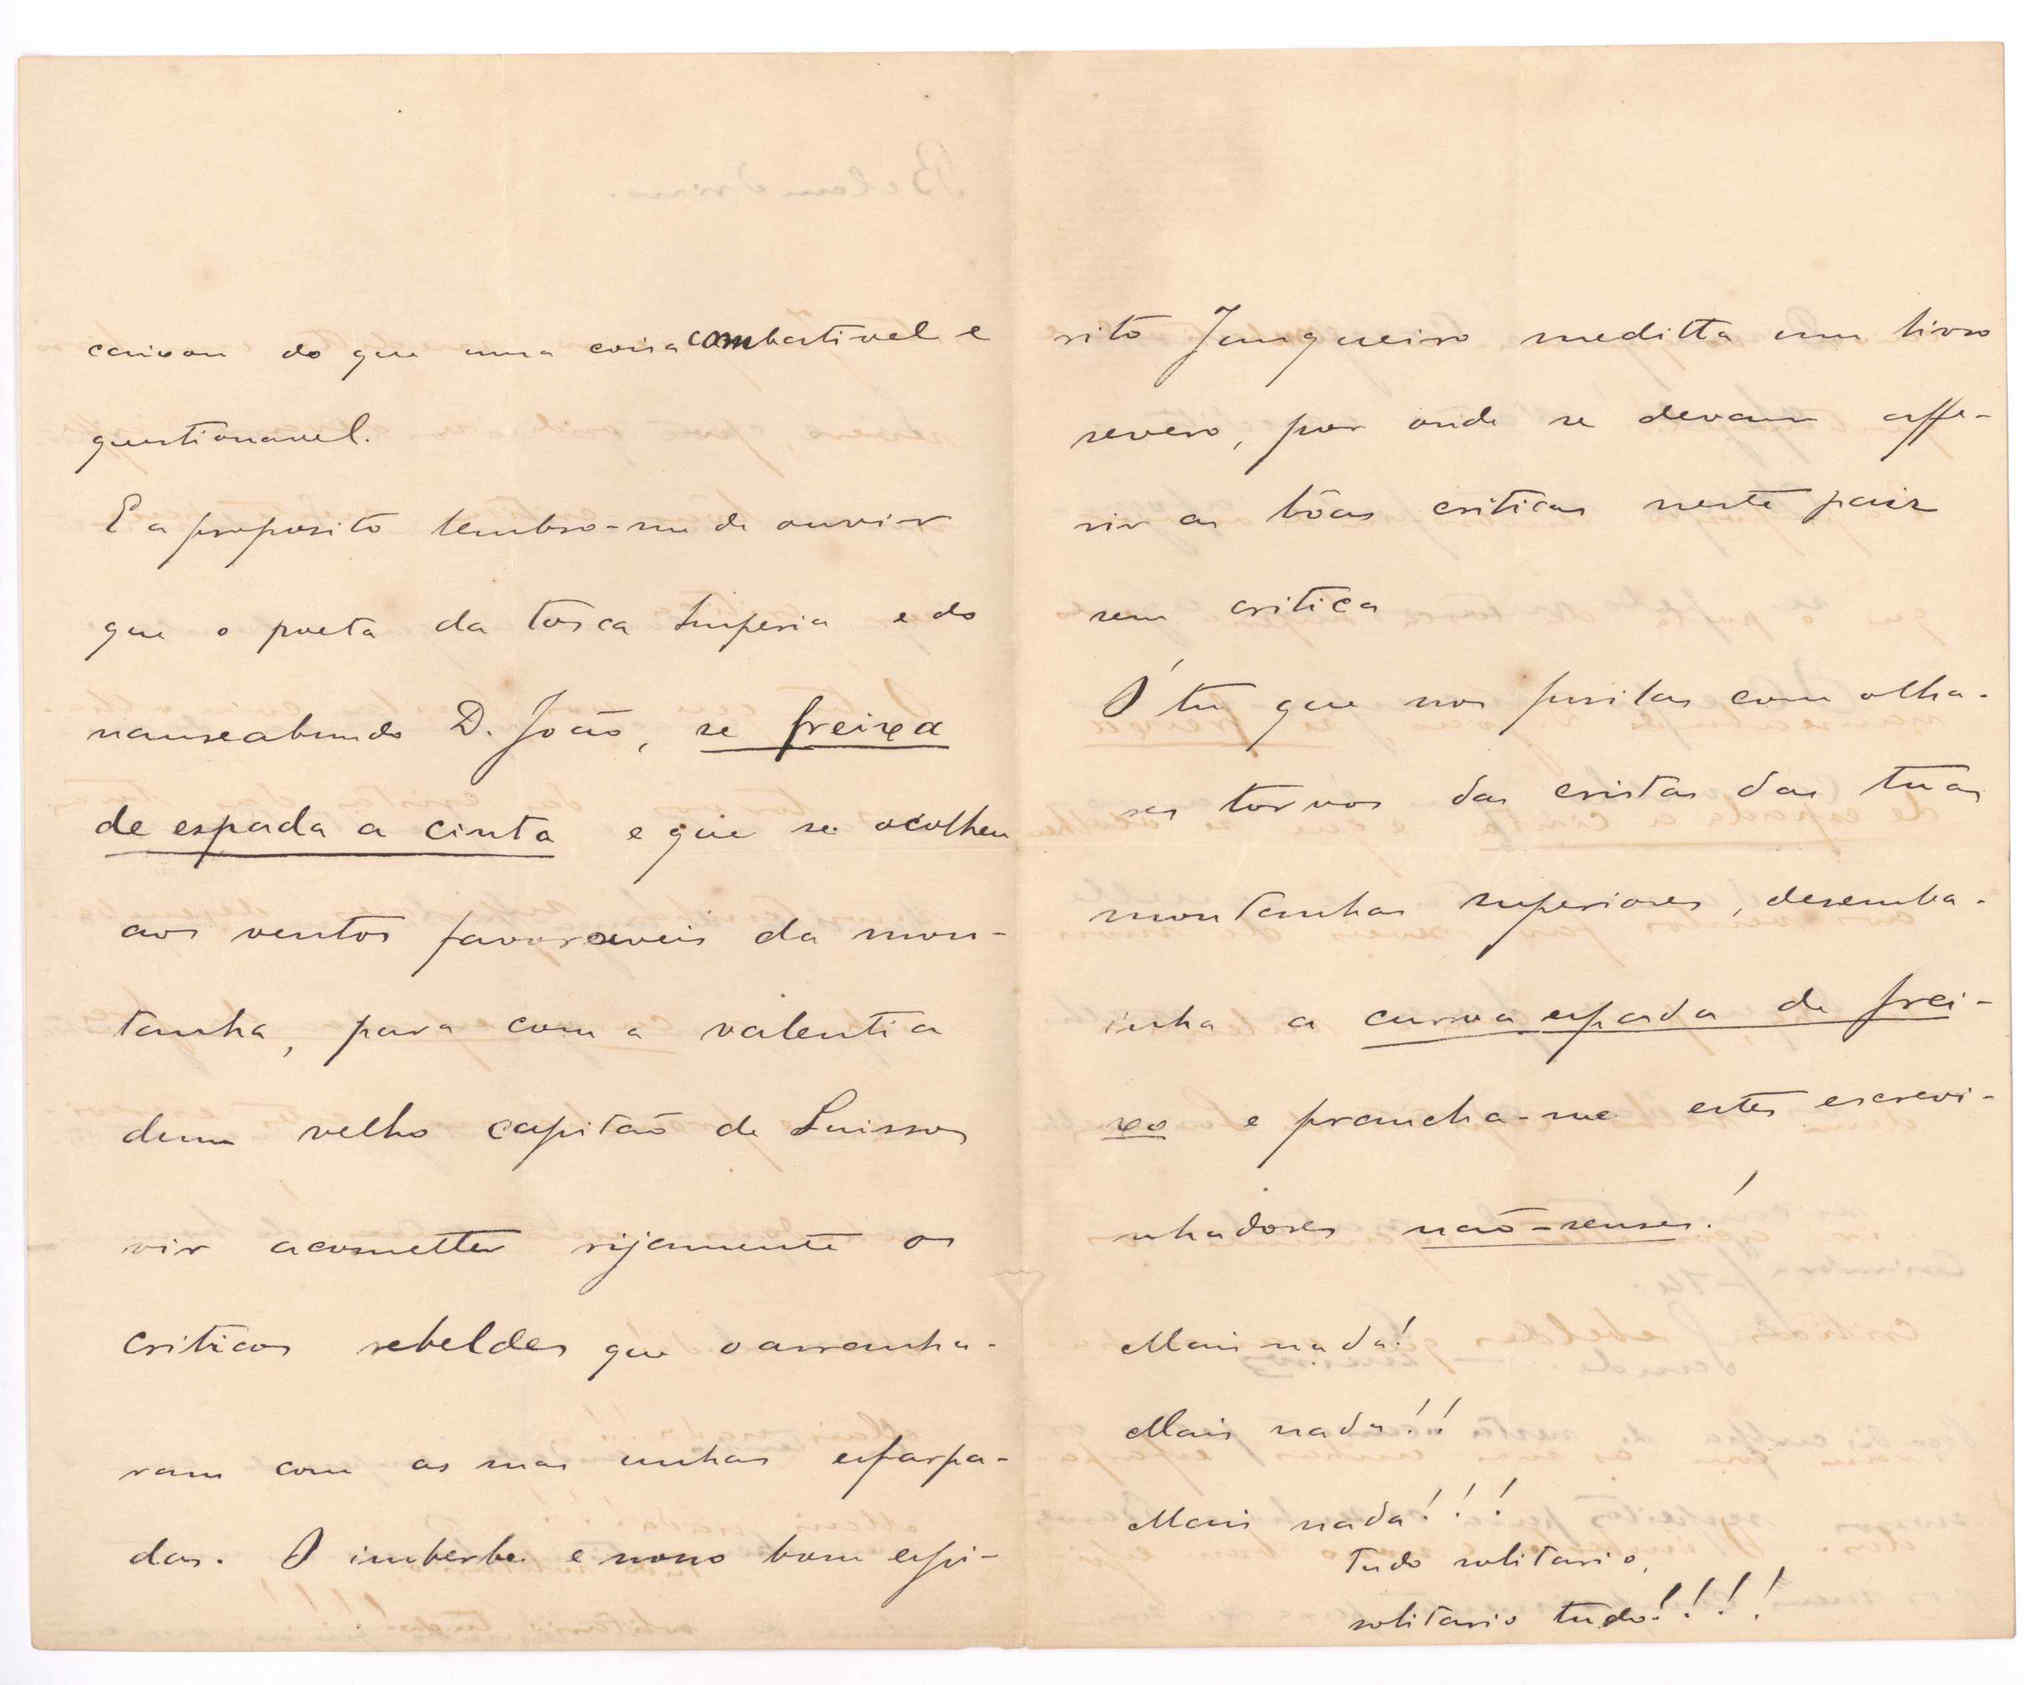 do que uma coisa combativel e
questionavel.
E a proposito lembro-me de ouvir
que o poeta da tosca Imperia e do
nauseabundo D. João, se freixa
de espada a cinta e que se acolheu
aos ventos favoraveis da mon-
tanha, para com a valentia
dum velho capitão de Suissos
vir acometter rijamente os
criticos rebeldes que o arranha-
ram com as suas unhas esfarpa-
das. O imberbe e nosso bom espi-
rito Junqueiro meditta um livro
severo, por onde se devam affe-
rir as bôas criticas neste paiz
sem critica
Ó tu que nos fusilas com olha-
res torvos das cristas das tuas
montanhas superiores, desemba-
inha a curva espada de frei-
xo e prancha-me estes escrevi-
nhadores não-senses!
Mais nada!
Mais nada!!
Mais nada!!!
Tudo solitario,
solitario tudo!!!!